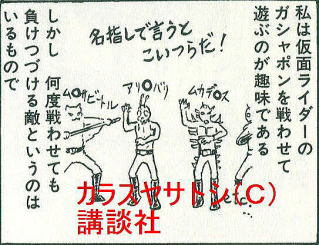 私は仮面ライダーの
ガシャポンを戦わせて
遊ぶのが趣味である
しかし 何度戦わせても
負けつづける敵というのは
いるもので
名指しで言うと
こいつらだ！
ム〇サビードル
アリ〇バリ
ムカデ〇ス
etc.
カラスヤサトシ(C)
講談社